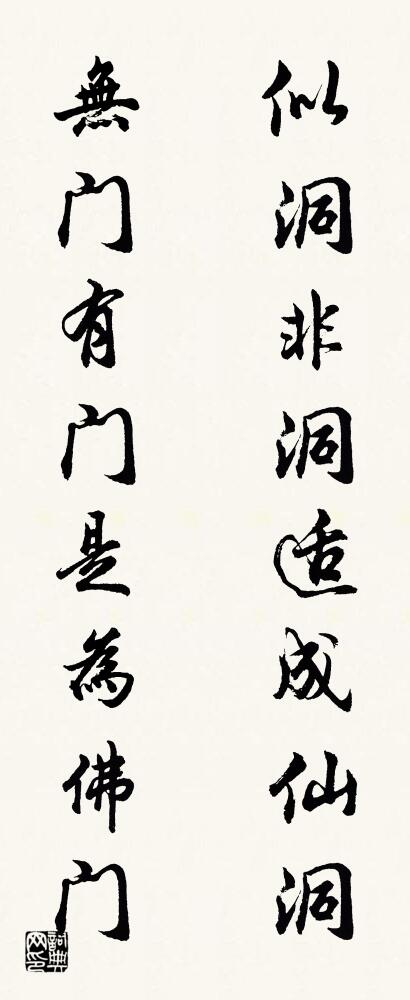 似洞非洞适成仙洞
無门有门是為佛门
詞典网印